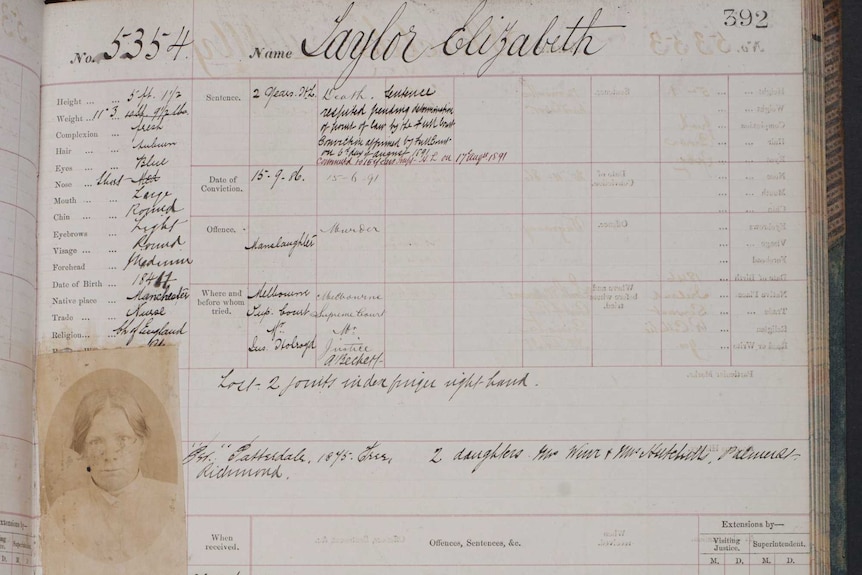 392
No. 5354. Name Taylor Elizabeth
Height ... 5 ft. 1 1/2
Weight ... 11 st 3
Complexion fresh
Hair ... Auburn
Eyes ... Blue
Nose ... Short
Mouth ... Large
Chin ... Round
Eyebrows ... Light
Visage ... Round
Forehead Medium
Date of Birth ... 184
Native place ... Manchester
Trade ... Nurse
Religion... Ch of England
Sentence. 2 Years H.L. Death. Sentence
respited pending determination
of point of law by the Full Court
Conviction affirmed by Full Court
on 6th day of August 1891
on 17 Augt 1891
Date of
Conviction. 15-9-86. 15-6-91
Offence. Manslaughter Murder
Where and
before whom
tried.
Melbourne Melbourne
Sup. Court Supreme Court
Mr. Mr.
Jus. Holroyd Justice
A'Beckett
Lost 2 joints index finger right hand.
"Patterdale, 1875. Free, 2 daughters Mrs Weir & Mrs Hutchell, Palmer St
Richmond.
When
received.
Offences, Sentences, &c.
Extensions by—
Visiting
Justice. Superintendent.
M. D. M. D.
Extensions by—
D. D.